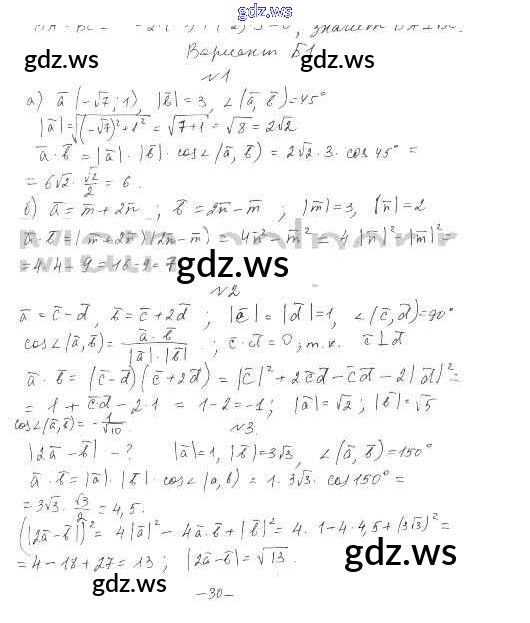 gdz.ws
Вариант Б1
gdz.ws gdz.ws
№1
а) a̅ (-√7; 1), |b̅| = 3, ∠(a̅, b̅) = 45°
|a̅| = √((-√7)² + 1²) = √(7+1) = √8 = 2√2
a̅ · b̅ = |a̅| · |b̅| · cos∠(a̅, b̅) = 2√2 · 3 · cos 45° =
= 6√2 · √2/2 = 6.
б) a̅ = m̅ + 2n̅ ; b̅ = 2n̅ - m̅ ; |m̅| = 3, |n̅| = 2
a̅ · b̅ = (m̅ + 2n̅)(2n̅ - m̅) = 4n̅² - m̅² = 4|n̅|² - |m̅|² =
= 4·4 - 9 = 16 - 9 = 7
gdz.ws
№2
a̅ = c̅ - d̅, b̅ = c̅ + 2d̅ ; |c̅| = |d̅| = 1, ∠(c̅, d̅) = 90°
cos∠(a̅, b̅) = a̅ · b̅ / |a̅| · |b̅| ; c̅ · d̅ = 0; т.к. c̅ ⊥ d̅
a̅ · b̅ = (c̅ - d̅)(c̅ + 2d̅) = |c̅|² + 2c̅d̅ - c̅d̅ - 2|d̅|² =
= 1 + c̅d̅ - 2·1 = 1 - 2 = -1; |a̅| = √2 ; |b̅| = √5
cos∠(a̅, b̅) = - 1/√10 .
№3
|2a̅ - b̅| - ? |a̅| = 1, |b̅| = 3√3, ∠(a̅, b̅) = 150°
a̅ · b̅ = |a̅| · |b̅| · cos∠(a, b) = 1 · 3√3 · cos 150° =
= 3√3 · √3/2 = 4,5.
(|2a̅ - b̅|)² = 4|a̅|² - 4a̅·b̅ + |b̅|² = 4 · 1 - 4 · 4,5 + (3√3)² =
= 4 - 18 + 27 = 13 ; |2a̅ - b̅| = √13 .
gdz.ws gdz.ws
-30-